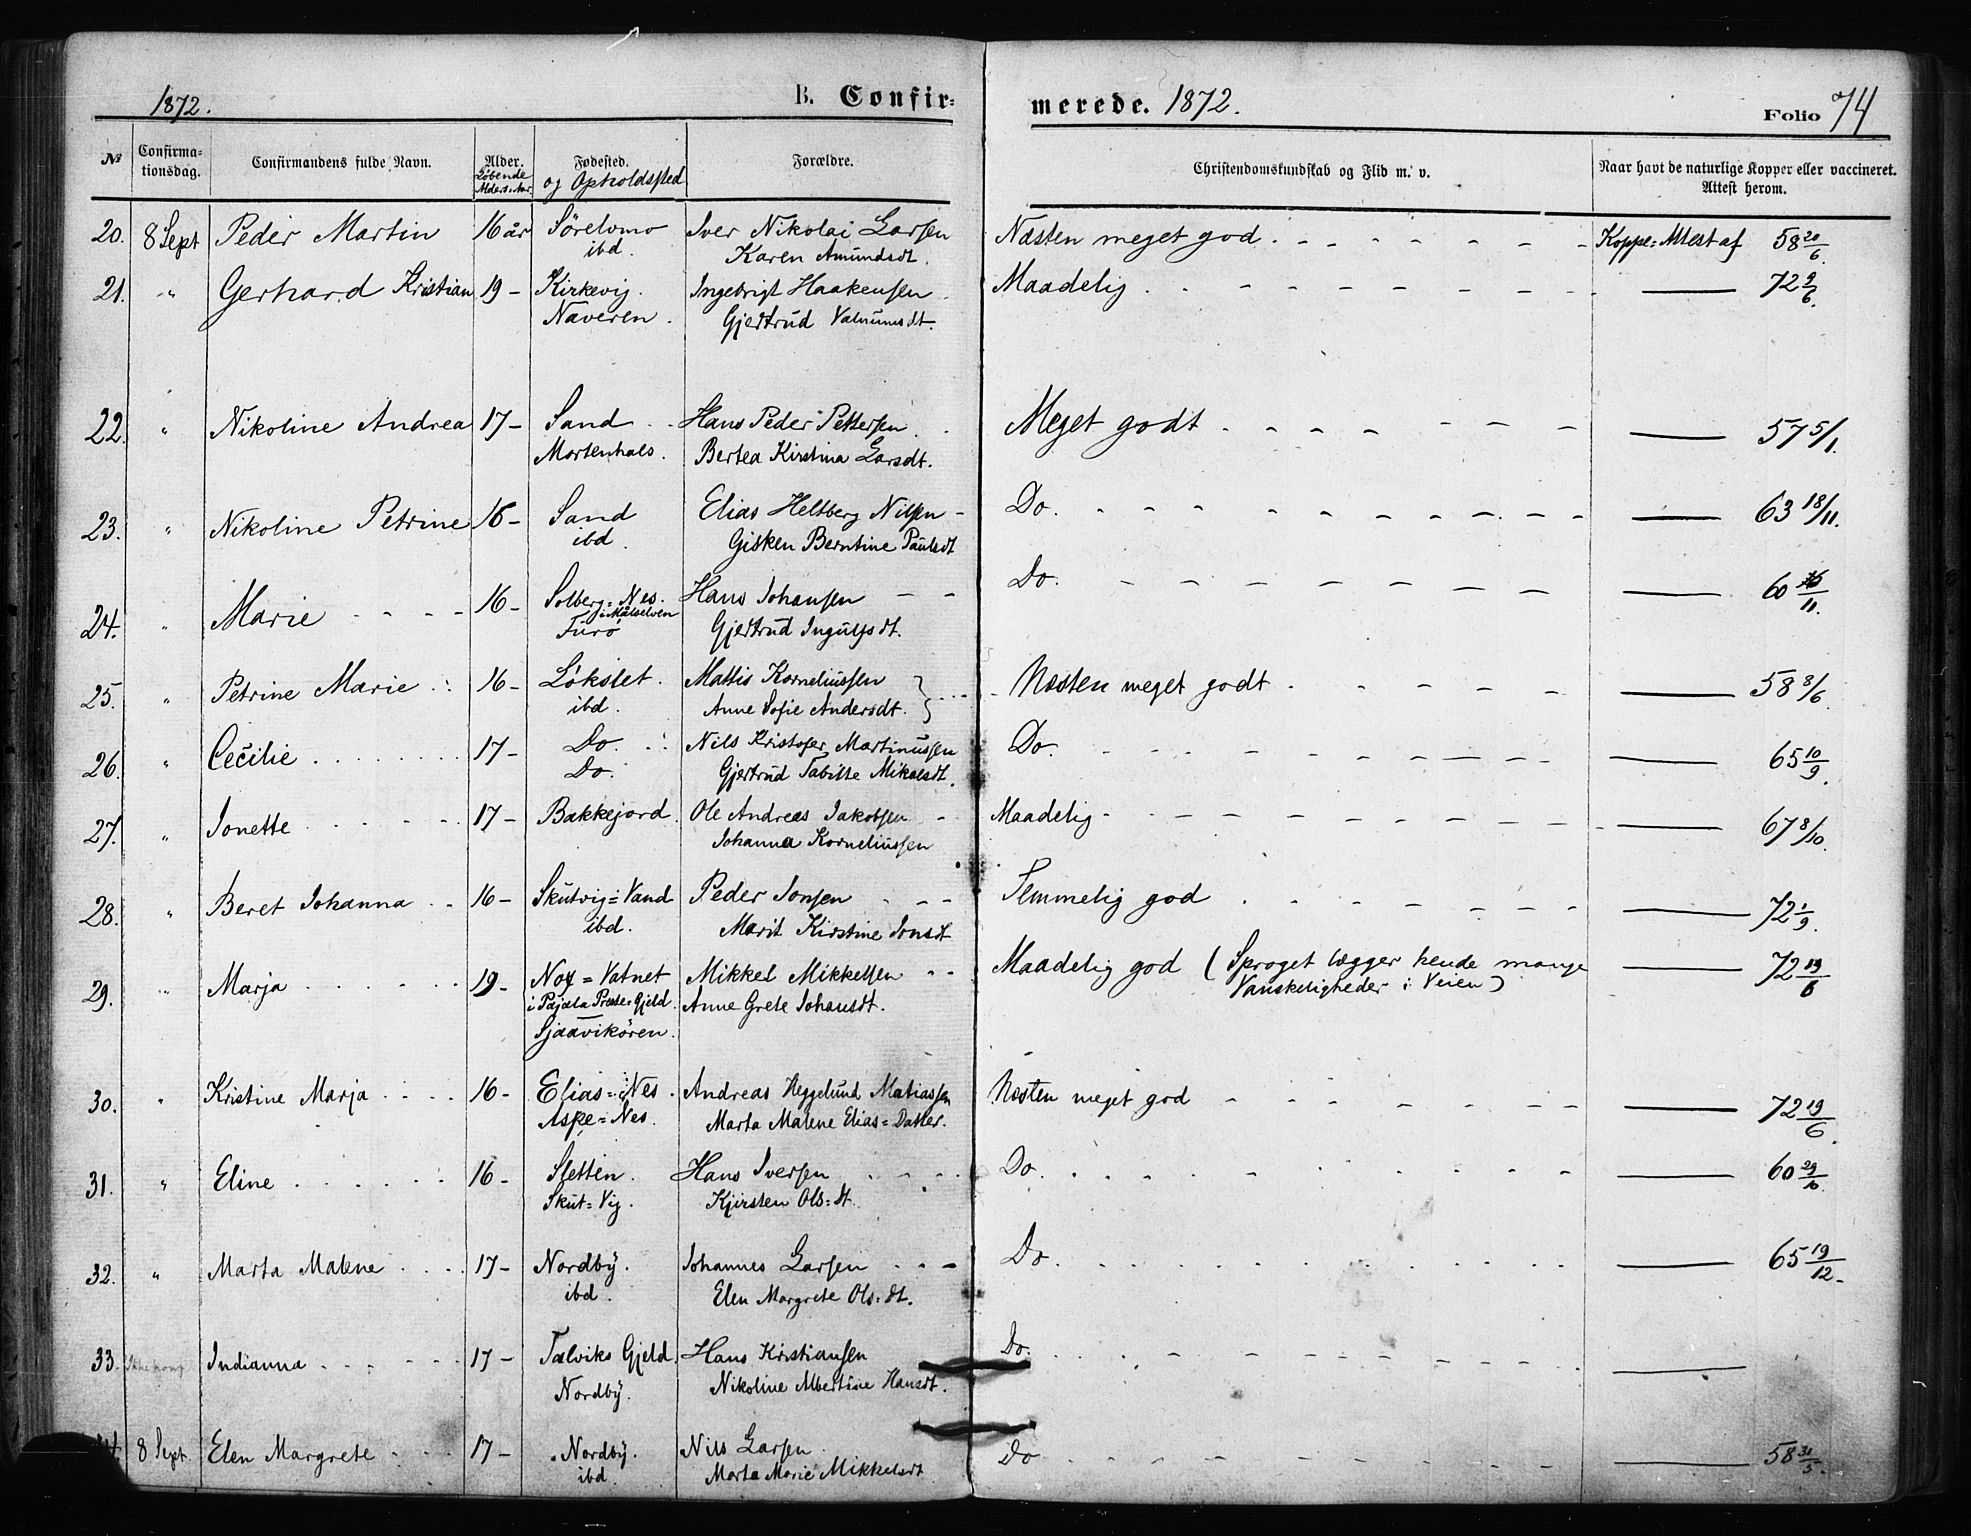 1872. B. Confir=
merede. 1872. Folio 74
№ Confirma= tionsdag. Confirmandens fulde Navn. Alder. Løbende Alders-Aar. Fødested. og Opholdssted Forældre. Christendomskundskab og Flid m. v. Naar havt de naturlige Kopper eller vaccineret. Attest herom.
20. 8 Sept Peder Martin 16 år Sørelvmo Iver Nikolai Larsen Næsten meget god Koppe=Attest af 58 20/6
ibd. Karen Amundsdt.
21. " Gerhard Kristian 19 - Kirkevig. Ingebrigt Haakensen Maadelig 72 9/6
Naveren. Gjertrud
22. " Nikoline Andrea 17 - Sand Hans Peder Pettersen Meget godt 57 5/1.
Mortenhals. Bertea Kirstina Larsdt.
23. " Nikoline Petrine 16 - Sand Elias Heltberg Nilsen Do. 63 18/11.
ibd. Gisken Berntine Paulsdt
24. " Marie 16 - Solberg=Nes. Hans Johansen Do. 60 /11.
i Målselven
Furø Gjertrud Ingulfsdt.
25. " Petrine Marie 16 - Løkslet. Mattis Korneliussen Næsten meget godt 58 8/6.
ibd. Anne Sofie Andersdt.
26. " Cecilie 17 - Do. Nils Kristofer Martinussen Do. 65 10/9.
Do. Gjertrud Tabitte Mikalsdt.
27. " Jonette 17 - Bakkejord. Ole Andreas Jakobsen Maadelig 67 8/10.
Johanna Korneliussen
28. " Beret Johanna 16 - Skutvig=Vand Peder Jonsen Temmelig god 72 1/9.
ibd. Marit Kirstine Jonsdt
29. " Marja 19 - =Vatnet Mikkel Mikkelsen Maadelig god (Sproget lægger hende mange 72 19/6
i Pajala Præste=Gjeld. Anne Grete Johansdt. Vanskeligheder i Veien)
Sjaavikøren.
30. " Kristine Marja 16 - Elias=Nes. Andreas Heggelund Matiassen Næsten meget god 72 19/6.
Aspe=Nes. Marta Malene Elias=Datter.
31. " Eline 16 - Sletten. Hans Iversen Do. 60 29/10.
Skut=Vig. Kjirsten Ols=dt.
32. " Marta Malene 17 - Nordby. Johannes Larsen Do 65 19/12.
ibd. Elen Margrete Ols=dt.
33. Indianna 17 - Talviks Gjeld. Hans Kristiansen Do.
Nordby. Nikoline Albertine Hansdt.
8 Sept. Elen Margrete 17 - Nordby. Nils Larsen Do 58 /5.
ibd. Marta Marie Mikkelsdt